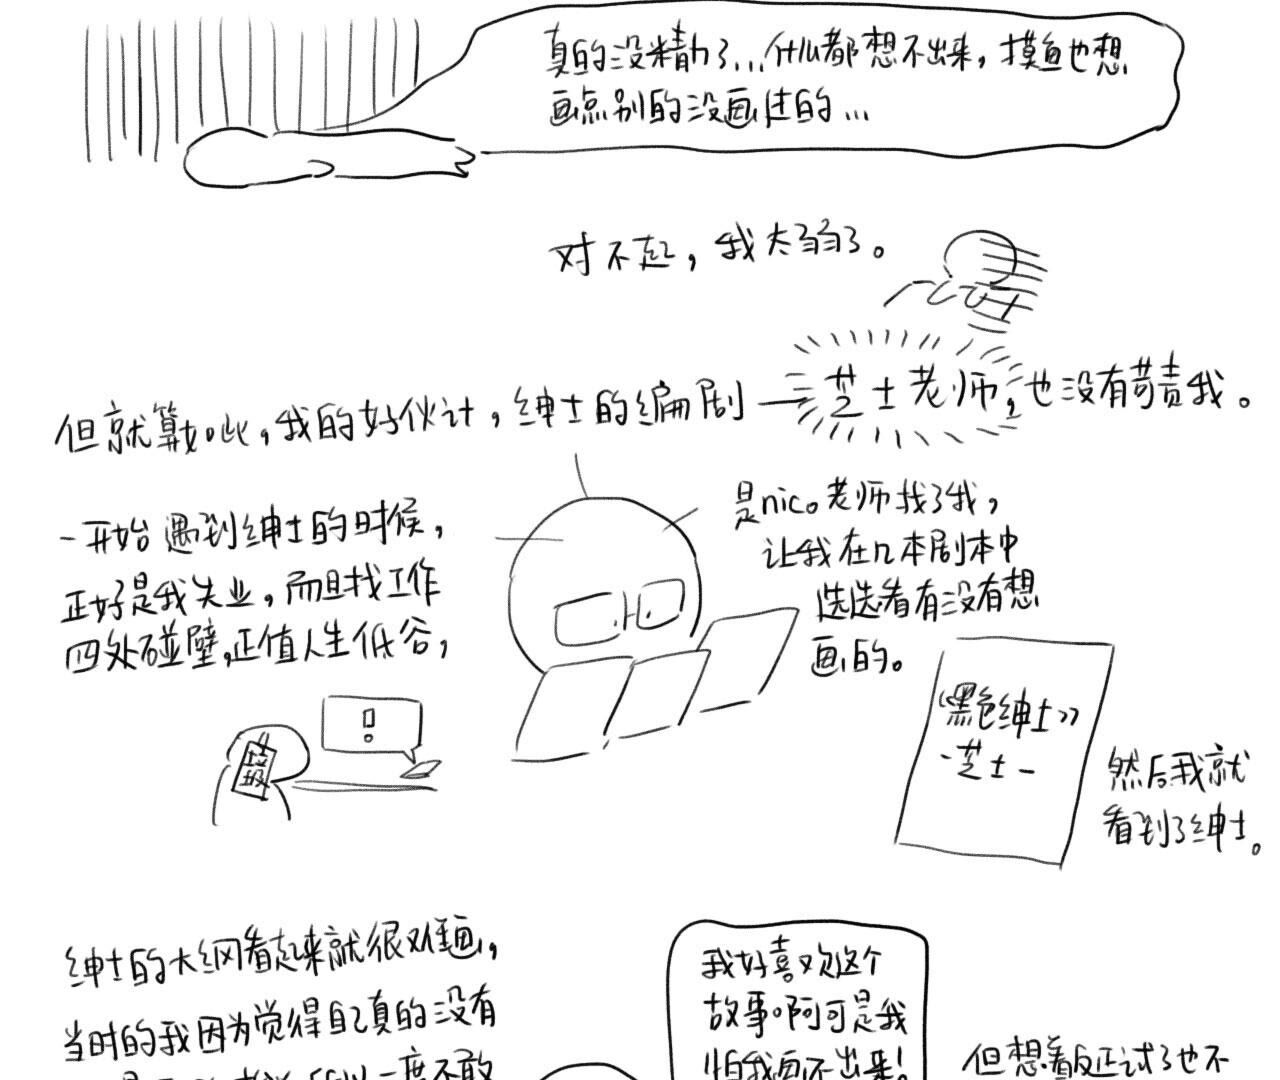 真的没精力了...什么都想不出来，摸鱼也想
画点别的没画过的...
对不起，我太弱了。
但就算如此，我的好伙计，绅士的编剧——芝士老师，也没有苛责我。
一开始遇到绅士的时候，
正好是我失业，而且找工作
四处碰壁，正值人生低谷，
是nico老师找了我，
让我在几本剧本中
选选看有没有想
画的。
垃圾
《黑色绅士》
-芝士-
然后我就
看到了绅士。
绅士的大纲看起来就很难画，
当时的我因为觉得自己真的没有
一度不敢
我好喜欢这个
故事啊可是我
怕我画不出来！
但想着反正试了也不